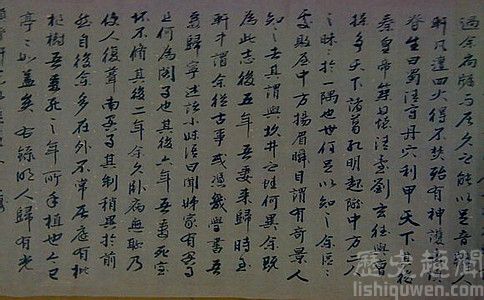 過余扃牖而居久之能以足音
軒凡遭四火得不焚殆有神護
脊生曰蜀清守丹穴利甲天下後
秦皇帝築懷清臺劉玄德與曹
操爭天下諸葛孔明起隴中方
之昧昧於一隅也世何足以知之余區區
處敗屋中方揚眉瞬目謂有奇景人
知之者其謂與坎井之蛙何異余既
為此志後五年吾妻來歸時至
軒中謂余從古事或憑几學書吾
妻歸寧述諸小妹語曰聞姊家有閣子
且何為閣子也其後六年吾妻死室
壞不修其後二年余久臥病無聊乃
使人復葺南閣子其制稍異於前
然自後余多在外不常居庭有枇
杷樹吾妻死之年所手植也今已
亭亭如蓋矣右錄明人歸有光
歷史趣聞
lishiquwen.com